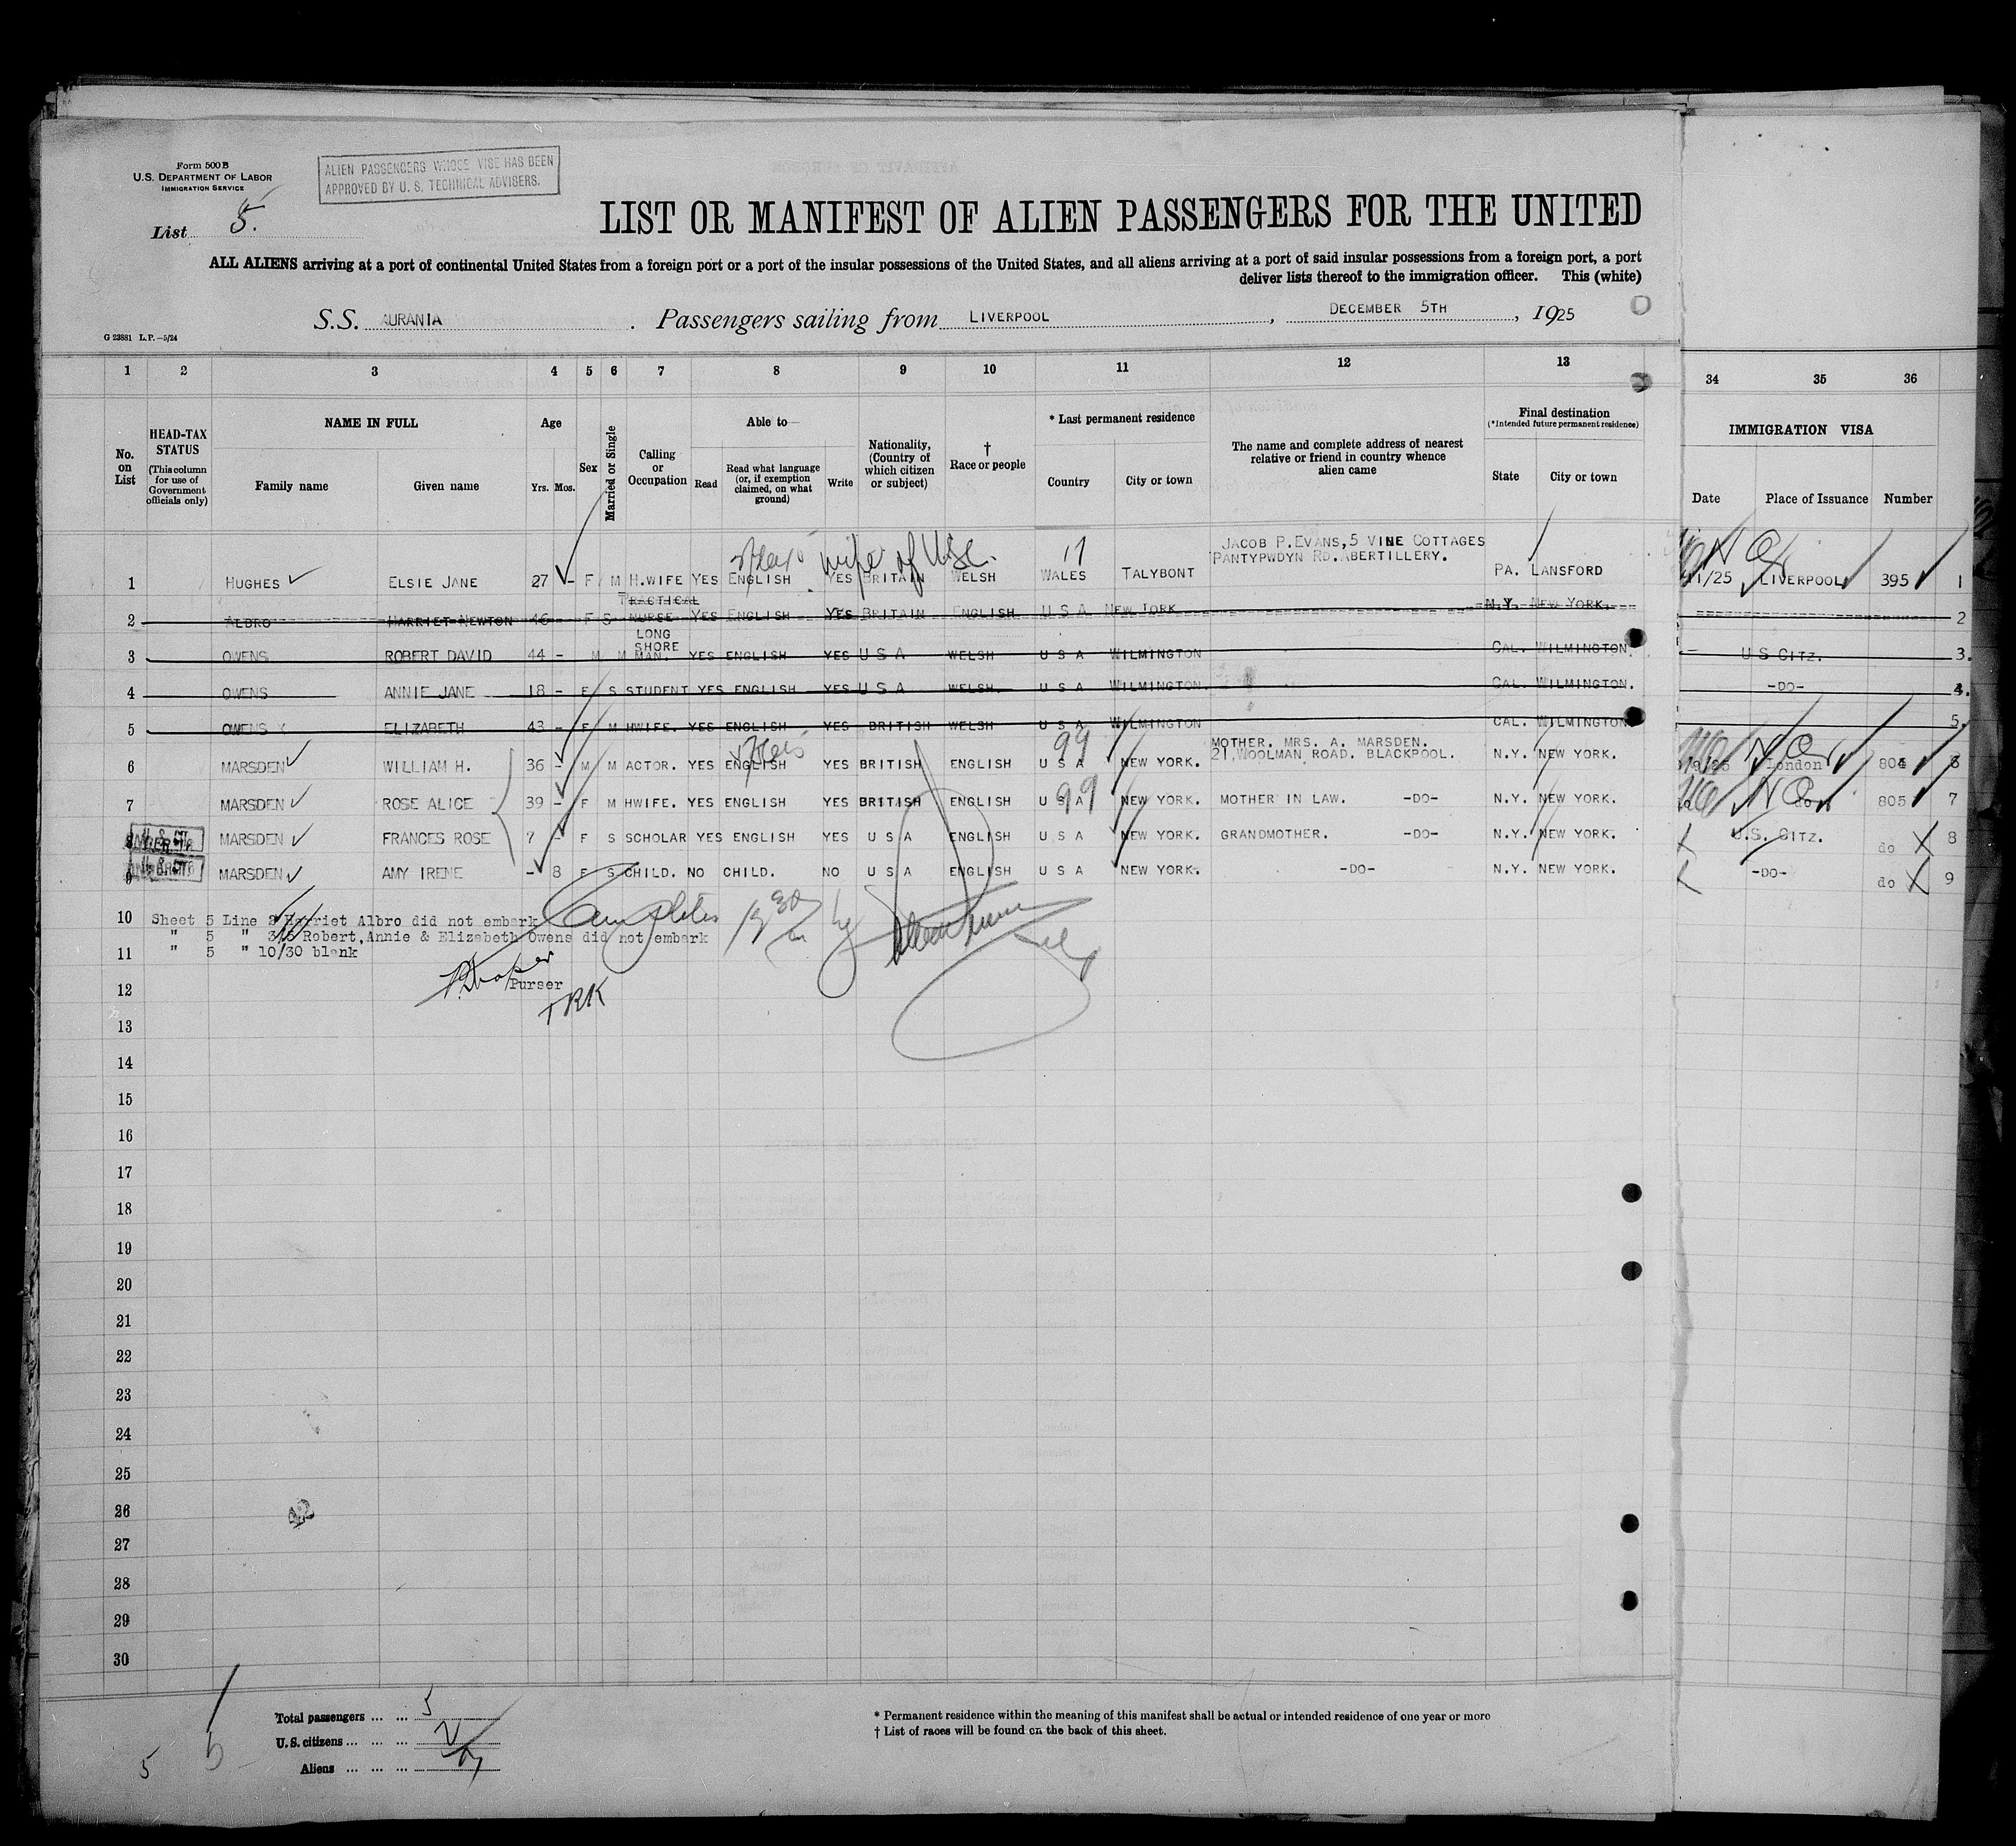 Form 500 B
U.S. DEPARTMENT OF LABOR
IMMIGRATION SERVICE
ALIEN PASSENGERS WHOSE VISE HAS BEEN
APPROVED BY U. S. TECHNICAL ADVISERS.
List 5.
LIST OR MANIFEST OF ALIEN PASSENGERS FOR THE UNITED
ALL ALIENS arriving at a port of continental United States from a foreign port or a port of the insular possessions of the United States, and all aliens arriving at a port of said insular possessions from a foreign port, a port
deliver lists thereof to the immigration officer. This (white)
S.S. AURANIA . Passengers sailing from LIVERPOOL , DECEMBER 5TH , 1925
G 23881 L.P.—5/24
1 2 3 4 5 6 7 8 9 10 11 12 13 34 35 36
No. on List
HEAD-TAX STATUS (This column for use of Government officials only)
NAME IN FULL
Family name Given name
Age
Yrs. Mos.
Sex
Married or Single
Calling or Occupation
Able to—
Read Read what language (or, if exemption claimed, on what ground) Write
Nationality, (Country of which citizen or subject)
† Race or people
* Last permanent residence
Country City or town
The name and complete address of nearest relative or friend in country whence alien came
Final destination
(*Intended future permanent residence)
State City or town
IMMIGRATION VISA
Date Place of Issuance Number
wife of USC. 17 JACOB P.EVANS,5 VINE COTTAGES
PANTYPWDYN RD.ABERTILLERY.
1 HUGHES ELSIE JANE 27 - F M H.WIFE YES ENGLISH YES BRITAIN WELSH WALES TALYBONT PA. LANSFORD 11/25 LIVERPOOL 395 1
2 ALBRO HARRIET NEWTON 46 - F S PRACTICAL NURSE YES ENGLISH YES BRITAIN ENGLISH U S A NEW YORK N.Y. NEW YORK. 2
3 OWENS ROBERT DAVID 44 - M M LONG SHORE MAN. YES ENGLISH YES U S A WELSH U S A WILMINGTON CAL. WILMINGTON. U S CITZ. 3.
4 OWENS ANNIE JANE 18 - F S STUDENT YES ENGLISH YES U S A WELSH. U S A WILMINGTON. CAL. WILMINGTON. -DO- 4.
5 OWENS X ELIZABETH 43 - F M HWIFE. YES ENGLISH YES BRITISH WELSH U S A WILMINGTON CAL. WILMINGTON 5.
99 MOTHER. MRS. A. MARSDEN.
6 MARSDEN WILLIAM H. 36 - M M ACTOR. YES ENGLISH YES BRITISH ENGLISH U S A NEW YORK. 21,WOOLMAN ROAD. BLACKPOOL. N.Y. NEW YORK. London 804 6
7 MARSDEN ROSE ALICE 39 - F M HWIFE. YES ENGLISH YES BRITISH ENGLISH U S A 99 NEW YORK. MOTHER IN LAW. -DO- N.Y. NEW YORK. do 805 7
8 MARSDEN FRANCES ROSE 7 - F S SCHOLAR YES ENGLISH YES U S A ENGLISH U S A NEW YORK. GRANDMOTHER. -DO- N.Y. NEW YORK. U.S. CITZ. do 8
9 MARSDEN AMY IRENE - 8 F S CHILD. NO CHILD. NO U S A ENGLISH U S A NEW YORK. -DO- N.Y. NEW YORK. -DO- do 9
10 Sheet 5 Line 2 Harriet Albro did not embark
" 5 " 3/5 Robert,Annie & Elizabeth Owens did not embark
11 " 5 " 10/30 blank
Purser
12
TRK
13
14
15
16
17
18
19
20
21
22
23
24
25
26
27
28
29
30
Total passengers ... ... 5
U.S. citizens ... ... ... 2
Aliens ... ... ...
5
* Permanent residence within the meaning of this manifest shall be actual or intended residence of one year or more
† List of races will be found on the back of this sheet.